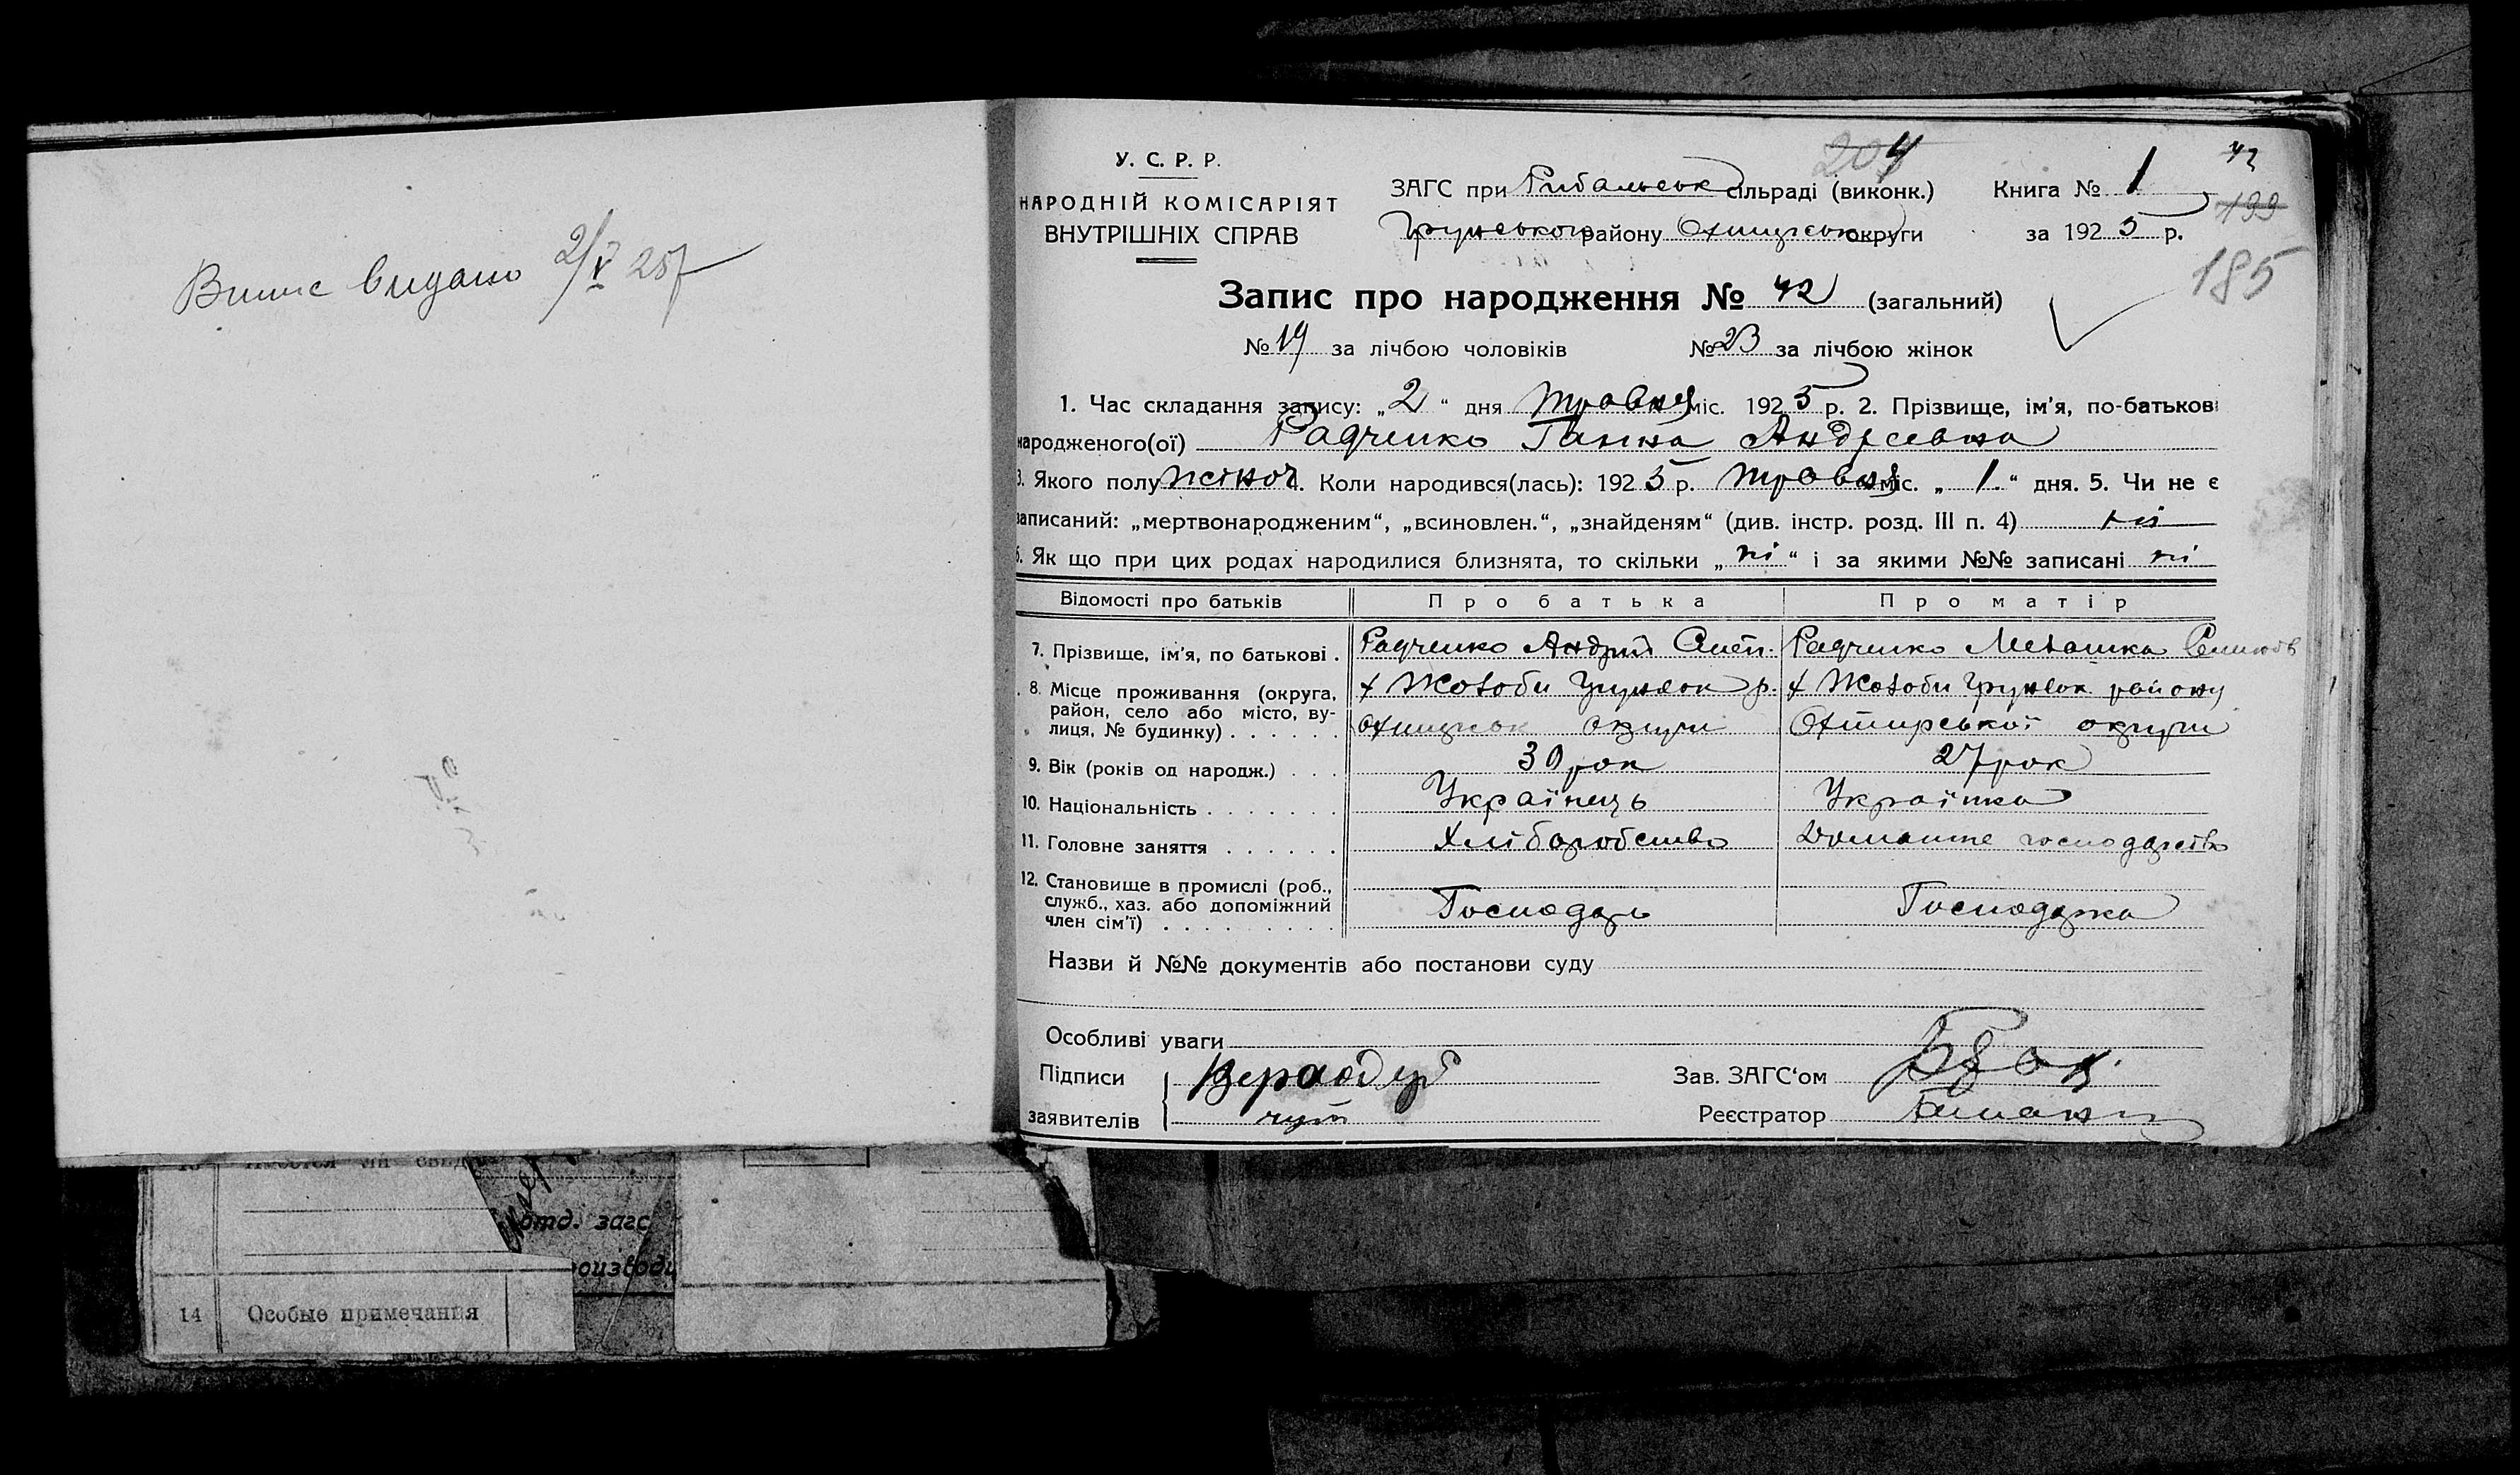 Випис видано 2/V 25
204
У. С. Р. Р.
НАРОДНІЙ КОМІСАРІЯТ
ВНУТРІШНІХ СПРАВ
ЗАГС при Рибальськ сільраді (виконк.)
Грунського району Охтирськ округи
Книга № 1
за 1925 р.
42
199
185
Запис про народження № 42 (загальний)
№ 19 за лічбою чоловіків № 23 за лічбою жінок
1. Час складання запису: „2“ дня Травня міс. 1925 р. 2. Прізвище, ім’я, по-батькові
народженого(ої) Радченко Ганна Андреевна
3. Якого полу жіноч. Коли народився(лась): 1925 р. травня міс. „1.“ дня. 5. Чи не є
записаний: „мертвонародженим“, „всиновлен.“, „знайденям“ (див. інстр. розд. III п. 4) ні
6. Як що при цих родах народилися близнята, то скільки „ні“ і за якими №№ записані ні
Відомості про батьків Про батька Про матір
7. Прізвище, ім’я, по батькові . Радченко Андрій Радченко
8. Місце проживання (округа, х Жолоби Грунськ р. х Жолоби Грунськ району
район, село або місто, ву-
лиця, № будинку) . . . . . . Охтирськ округи Охтирської округи
9. Вік (років од народж.) . . . 30 рок 27 рок
10. Національність . . . . . . . Українець Українка
11. Головне заняття . . . . . . Хліборобство Домашнє господарство
12. Становище в промислі (роб.,
служб., хаз. або допоміжний Господарь Господарка
член сім’ї) . . . . . . . . .
Назви й №№ документів або постанови суду
Особливі уваги
Підписи
заявителів
Зав. ЗАГС‘ом
Реєстратор
отд. загс
14 Особые примечания